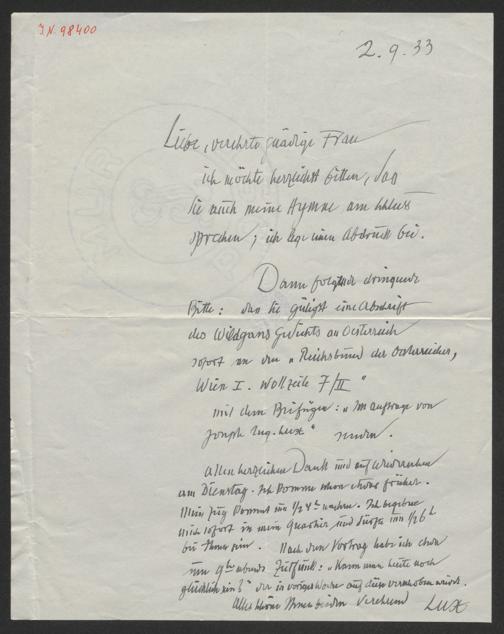 J.N. 98400
2.9.33
Liebe, verehrte gnädige Frau
ich möchte herzlichst bitten, das
Sie auch meine Hymne am Schluss
sprechen; ich lege einen Abdruck bei.
Dann folgende dringende
Bitte: das Sie gütigst eine Abschrift
des Wildgans Gedichts an Oesterreich
sofort an den "Reichsbund der Oesterreicher,
Wien I. Wollzeile 7/II"
mit dem Beifügen: "Im Auftrage von
Joseph Aug. Lux" senden.
Allen herzlichen Dank und auf Wiedersehen
am Dienstag. Ich komme schon etwas früher.
Mein Zug kommt um 1/2 4h nachm. Ich begebe
mich sofort in mein Quartier und dürfte um 1/2 6h
bei Ihnen sein. Nach dem Vortrag habe ich schon
um 9h abends Zeitfunk: "Kann man heute noch
glücklich sein?" der in voriger Woche auf diese verschoben wurde.
Alles schöne Ihnen beiden verehrend Lux